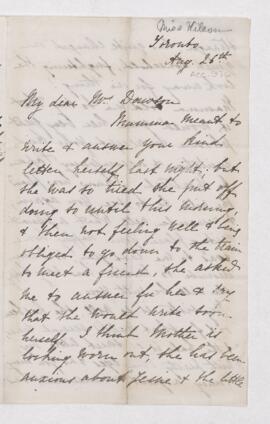 Miss Wilson
Toronto
Aug. 26th
My dear Mr Dawson
Mamma meant to
write & answer your kind
letter herself last night, but
she was so tired she put off
doing so until this morning,
& then not feeling well & being
obliged to go down to the train
to meet a friend, she asked
me to answer for her & say
that she would write soon
herself. I think Mother is
looking worn out, she has been
anxious about Jessie & the little